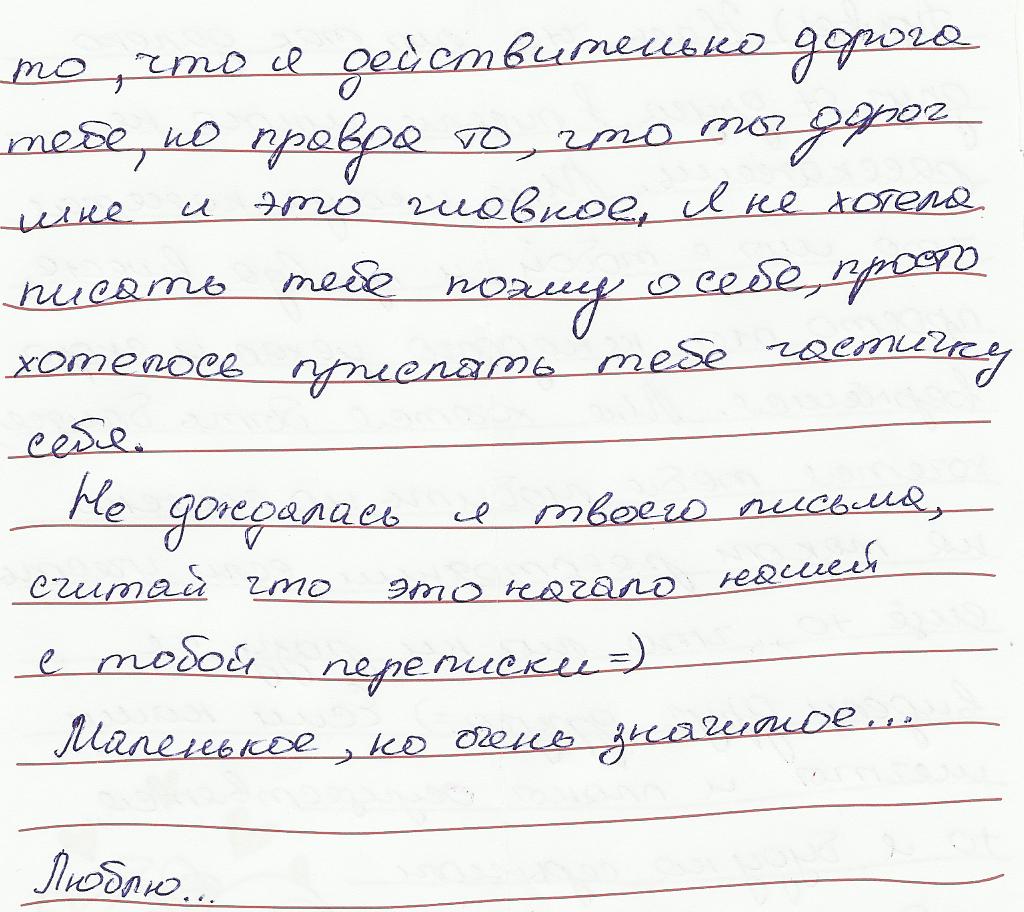 то, что я действительно дорога
тебе, но правда то, что ты дорог
мне и это главное, Я не хотела
писать тебе поэму о себе, просто
хотелось прислать тебе частичку
себя.
Не дождалась я твоего письма,
считай что это начало нашей
с тобой переписки =)
Маленькое, но очень значимое...
Люблю...